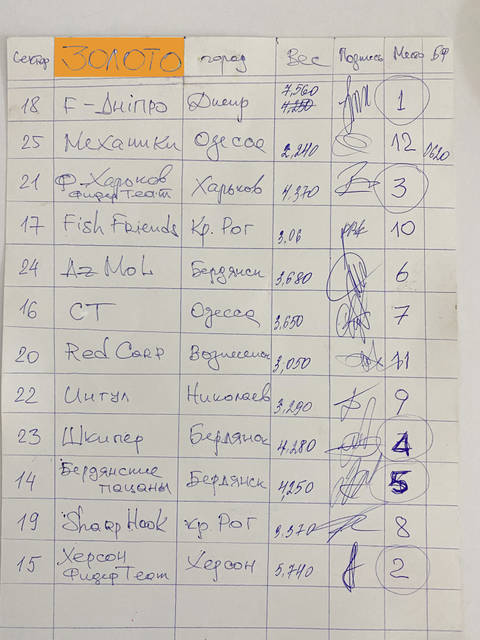 Сектор ЗОЛОТО город Вес Подпись Место БФ
18 F-Дніпро Днепр 7,560 4,250 1
25 Механики Одесса 2,240 12 0620
21 Ф-Харьков Фидер Team Харьков 4,370 3
17 Fish Friends Кр. Рог 3,06 10
24 Az MoL Бердянск 3,680 6
16 СТ Одесса 3,650 7
20 Red Carp Вознесенск 3,050 11
22 Интул Николаев 3,290 9
23 Шкипер Бердянск 4,280 4
14 Бердянские пацаны Бердянск 4,250 5
19 Sharp Hook Кр. Рог 3,370 8
15 Херсон Фидер Team Херсон 5,740 2